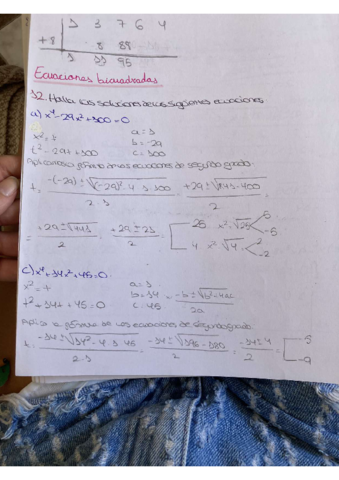 1 3 7 6 4
+8 8 88
1 11 95
Ecuaciones bicuadradas
32. Halla las soluciones de las siguientes ecuaciones
a) x⁴-29x²+100=0
x²=t
t²-29t+100
a=1
b=-29
c=100
Aplicamos la fórmula de las ecuaciones de segundo grado:
t= -(-29)±√(-29)²-4·1·100 / 2·1 = +29±√841-400 / 2
= +29±√441 / 2 = +29±21 / 2 = 25 x²=√25 5 -5
4 x²=√4 2 -2
c) x⁴+14x²+45=0
x²=t
t²+14t+45=0
a=1
b=14
c=45
-b±√b²-4ac / 2a
Aplico la fórmula de las ecuaciones de segundo grado.
t= -14±√14²-4·1·45 / 2·1 = -14±√196-180 / 2 = -14±4 / 2 = -5
-9